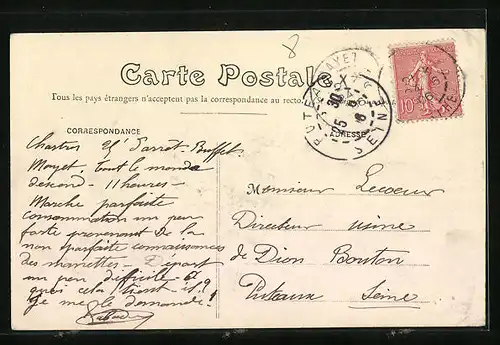 8
Carte Postale
Tous les pays étrangers n'acceptent pas la correspondance au recto
CORRESPONDANCE
ADRESSE
PUTEAUX
SEINE
10
Buffet
Mayet, tout le monde
descend - 11 heures -
Marche parfaite
consommation un peu
forte provenant de la
non parfaite connaissance
des manettes - Départ
un peu difficile - à
quoi cela tient-il ?
Je me le demande ?
Monsieur Lecoeur
Directeur usine
de Dion Bouton
Puteaux Seine